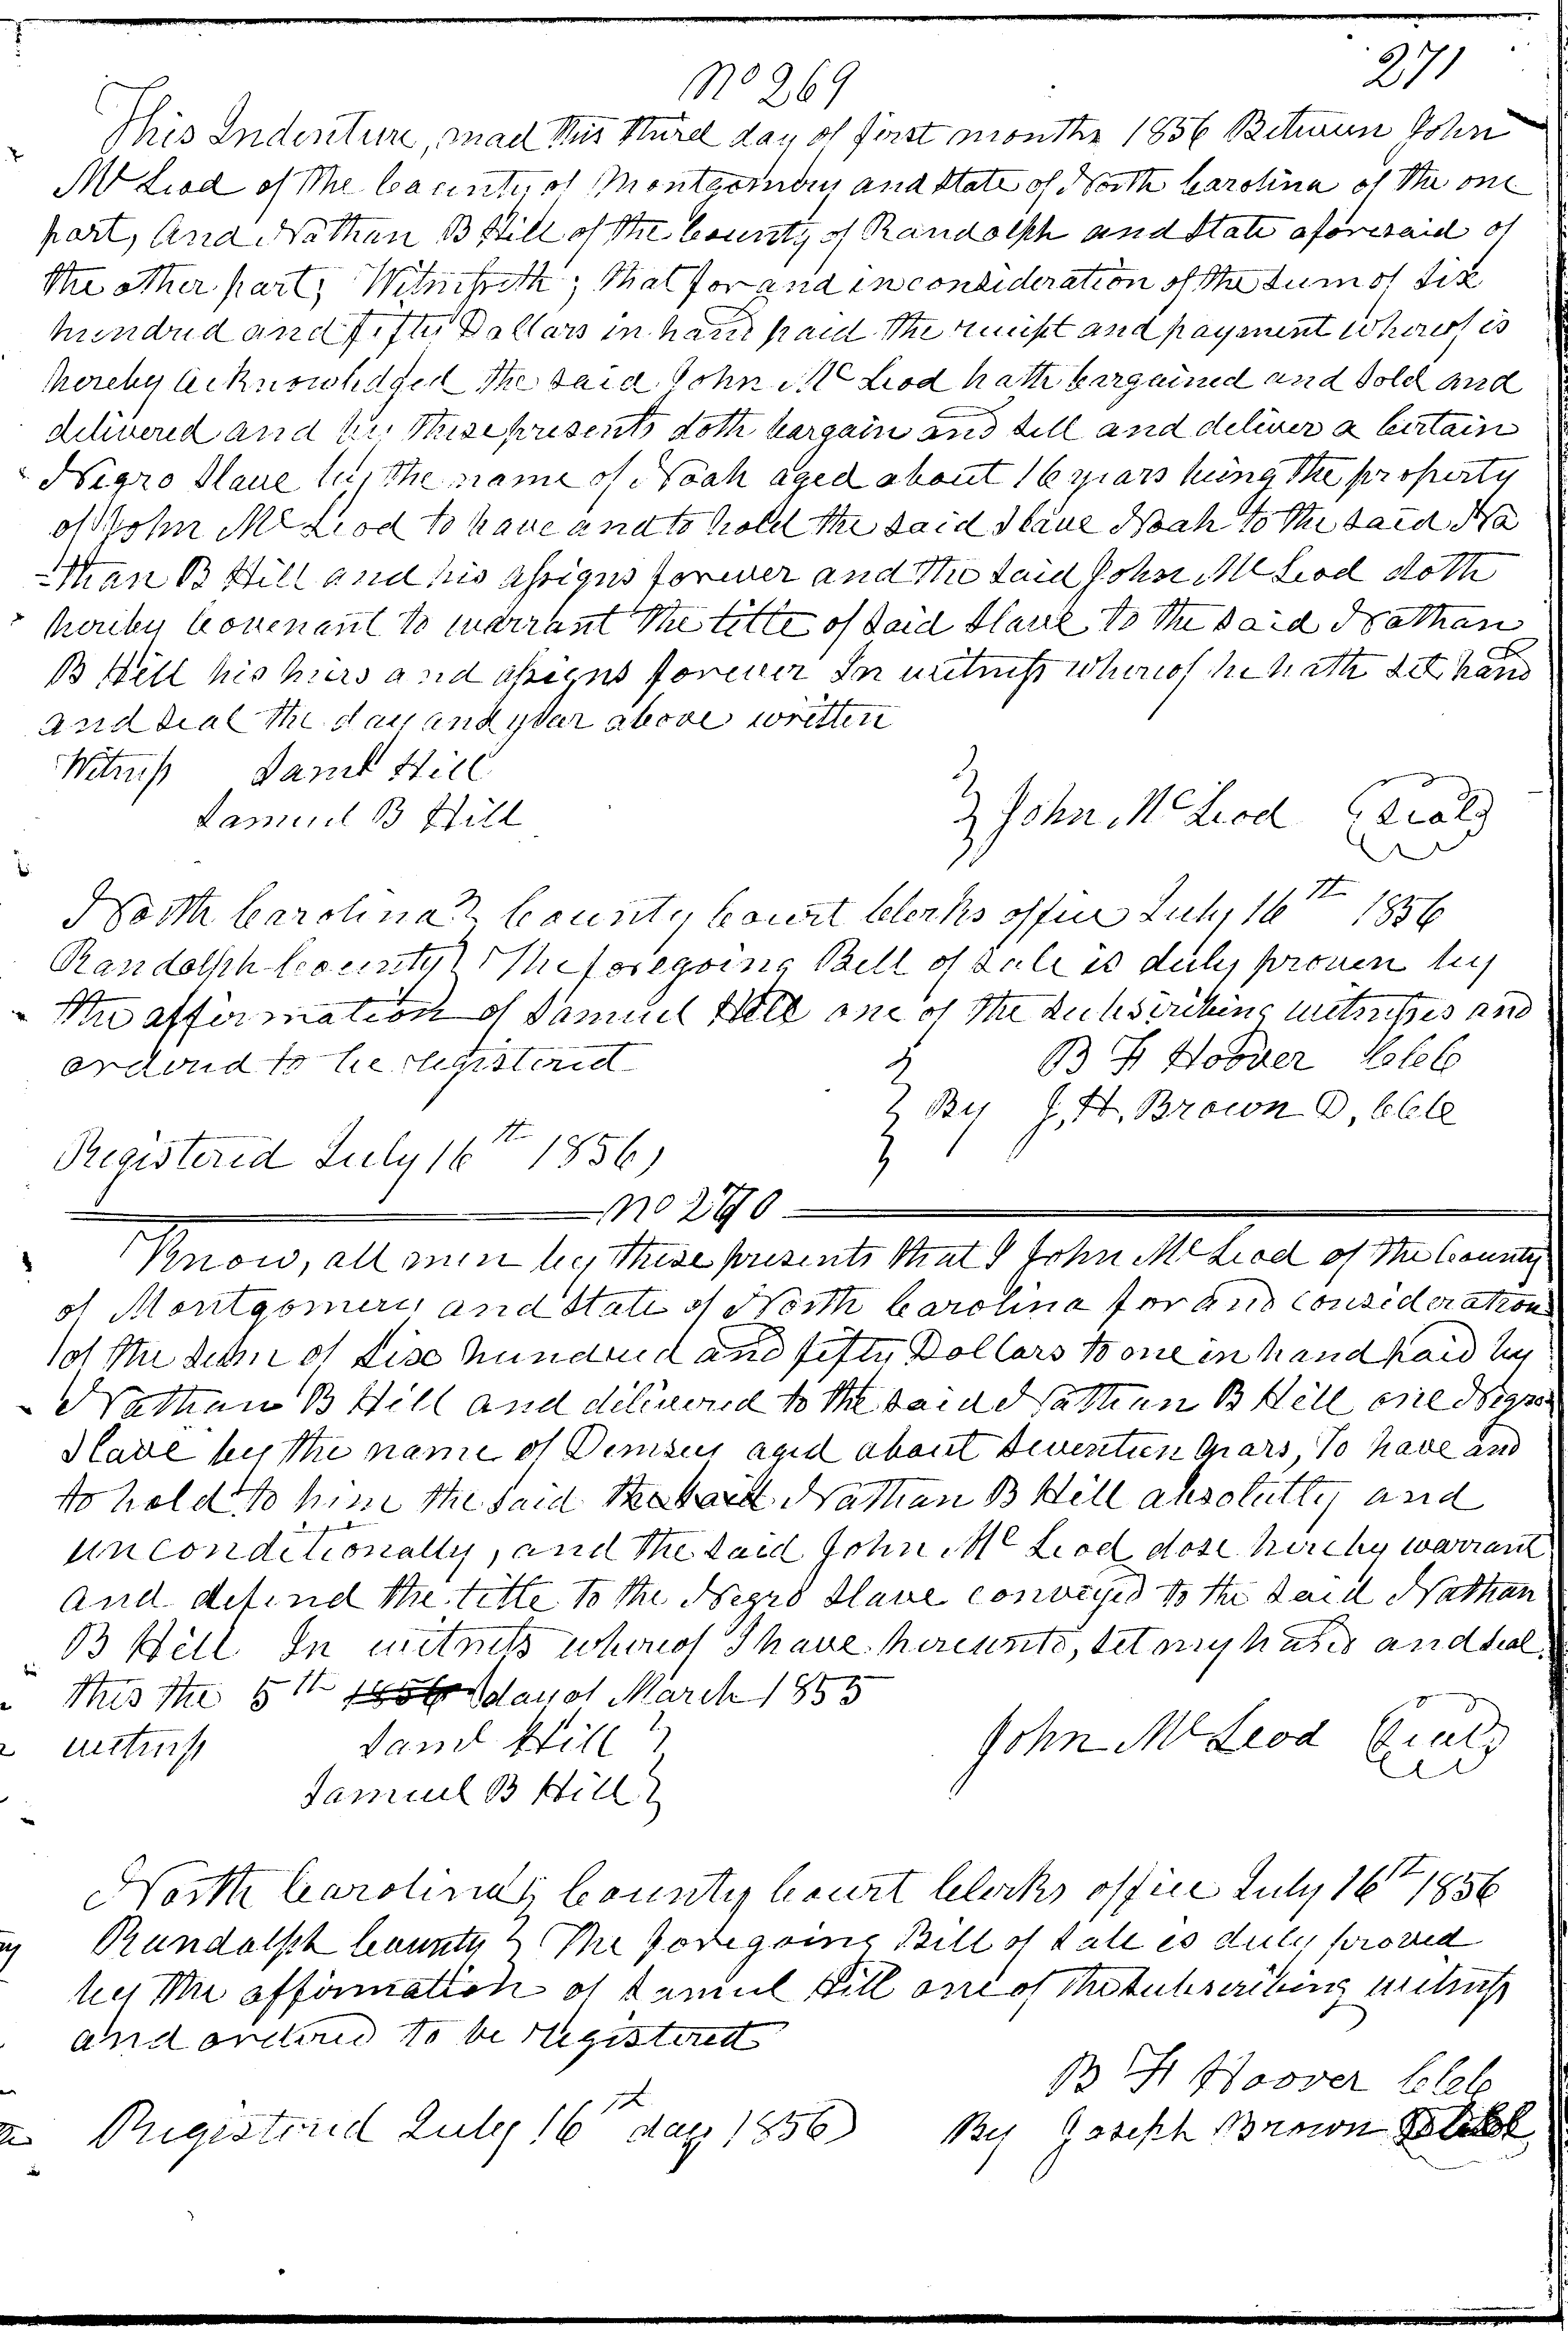 271
No 269
This Indenture, mad this third day of first month 1856 Between John
Mc Leod of the County of Montgomery and State of North Carolina of the one
part, And Nathan B Hill of the County of Randolph and State aforesaid of
the other part; Witnesseth; that for and in consideration of the sum of Six
hundred and fifty Dollars in hand paid the receipt and payment whereof is
hereby acknowledged the said John Mc Leod hath bargained and Sold and
delivered and by these presents doth bargain and sell and deliver a certain
Negro Slave by the name of Noah aged about 16 years being the property
of John Mc Leod to have and to hold the said Slave Noah to the said Na
-than B Hill and his assigns forever and the said John Mc Leod doth
hereby Covenant to warrant the title of said Slave to the said Nathan
B Hill his heirs and assigns forever In witness whereof he hath set hand
and seal the day and year above written
Witness Saml Hill
Samuel B Hill
John Mc Leod (Seal)
North Carolina County Court Clerks office July 16th 1856
Randolph County The foregoing Bill of Sale is duly proven by
the affirmation of Samuel Hill one of the subscribing witnesses and
ordered to be registered
B F Hoover CCC
By J. H. Brown D, CCC
Registered July 16th 1856
No 270
Know, all men by these presents that I John Mc Leod of the County
of Montgomery and State of North Carolina for and consideration
of the sum of Six hundred and fifty Dollars to me in hand paid by
Nathan B Hill and delivered to the said Nathan B Hill one Negro
Slave by the name of Demsey aged about seventeen years, To have and
to hold to him the said the said Nathan B Hill absolutly and
unconditionally, and the said John Mc Leod dose hereby warrant
and defend the title to the Negro Slave conveyed to the said Nathan
B Hill In witness whereof I have hereunto, set my hand and seal
this the 5th 1856 day of March 1855
witness Saml Hill
Samuel B Hill
John Mc Leod (Seal)
North Carolina County Court Clerks office July 16th 1856
Randolph County The foregoing Bill of Sale is duly proved
by the affirmation of Samuel Hill one of the subscribing witness
and ordered to be registered
B F Hoover CCC
Registered July 16th day 1856
By Joseph Brown